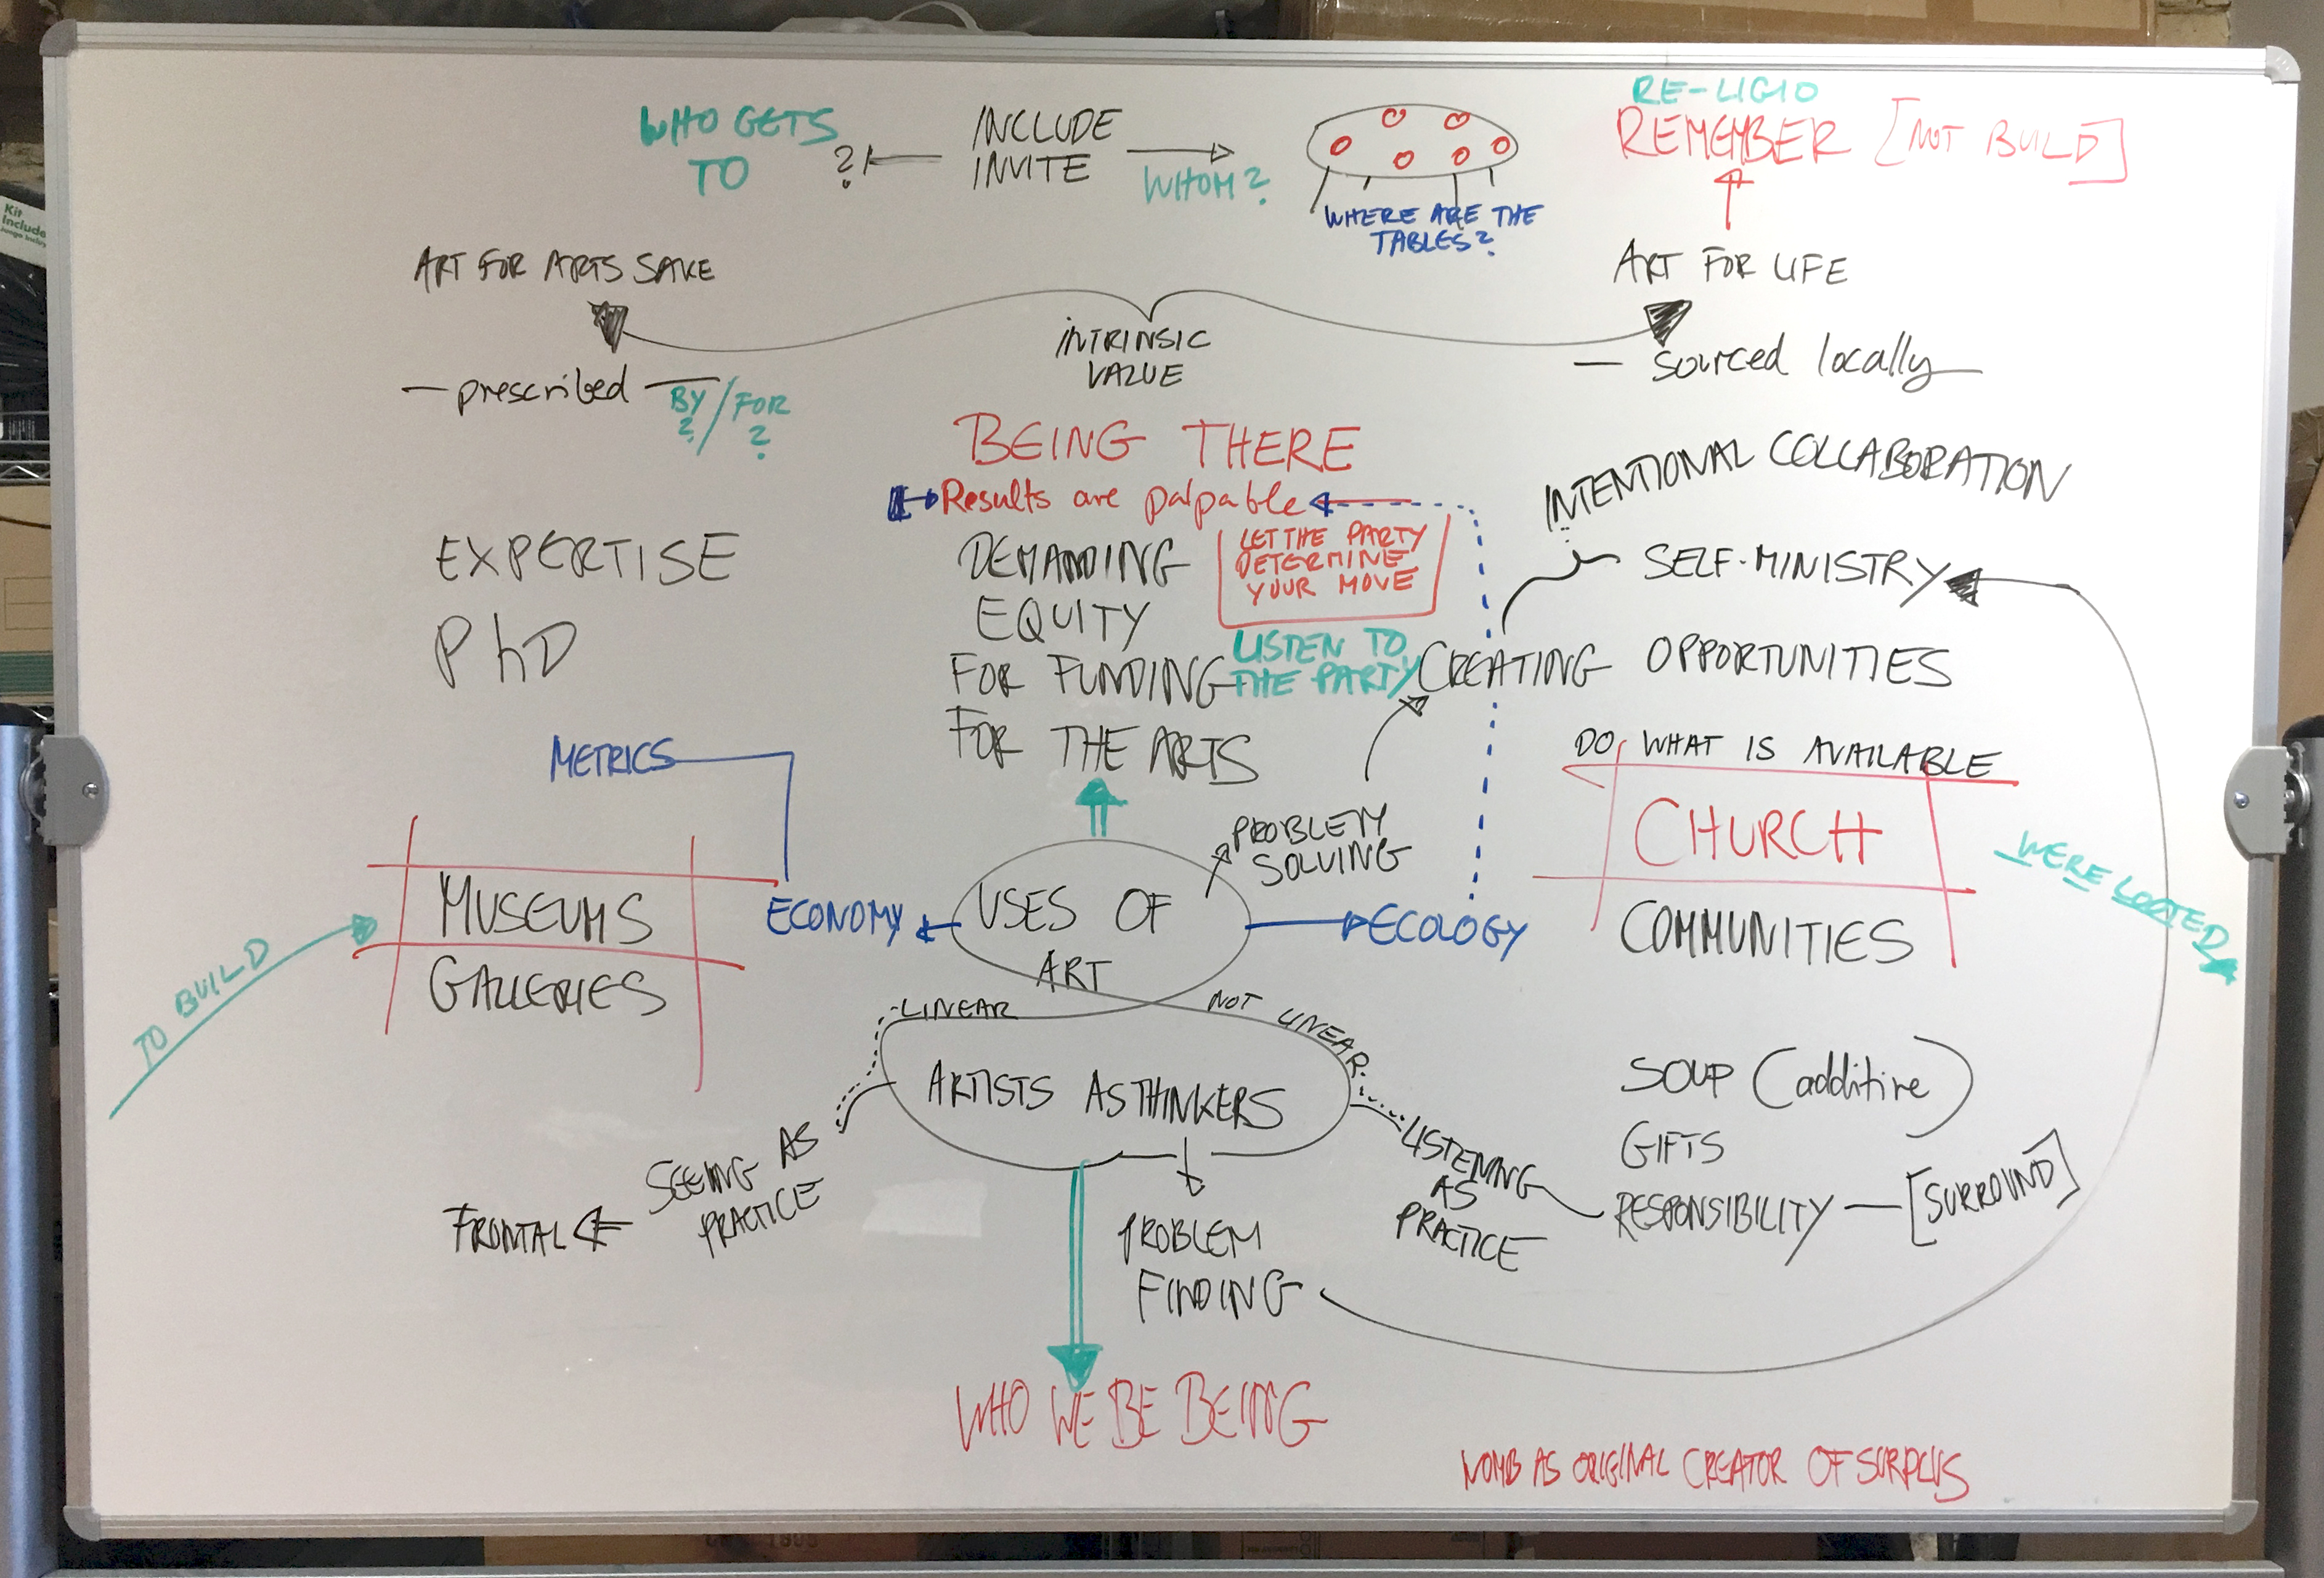 Kit
Include
WHO GETS
TO
?
INCLUDE
INVITE
WHOM?
WHERE ARE THE
TABLES?
RE-LIGIO
REMEMBER [NOT BUILD]
ART FOR ARTS SAKE
INTRINSIC
VALUE
ART FOR LIFE
— prescribed —
BY / FOR
? ?
— sourced locally —
BEING THERE
Results are palpable
EXPERTISE
PhD
DEMANDING
EQUITY
FOR FUNDING
FOR THE ARTS
LET THE PARTY
DETERMINE
YOUR MOVE
LISTEN TO
THE PARTY
INTENTIONAL COLLABORATION
SELF-MINISTRY
CREATING OPPORTUNITIES
METRICS
PROBLEM
SOLVING
DO WHAT IS AVAILABLE
CHURCH
COMMUNITIES
WERE LOOTED
TO BUILD
MUSEUMS
GALLERIES
ECONOMY
USES OF
ART
ECOLOGY
LINEAR
NOT LINEAR
ARTISTS AS THINKERS
SEEING AS
PRACTICE
FRONTAL
PROBLEM
FINDING
LISTENING
AS
PRACTICE
SOUP (additive)
GIFTS
RESPONSIBILITY — [SURROUND]
WHO WE BE BEING
WOMB AS ORIGINAL CREATOR OF SURPLUS